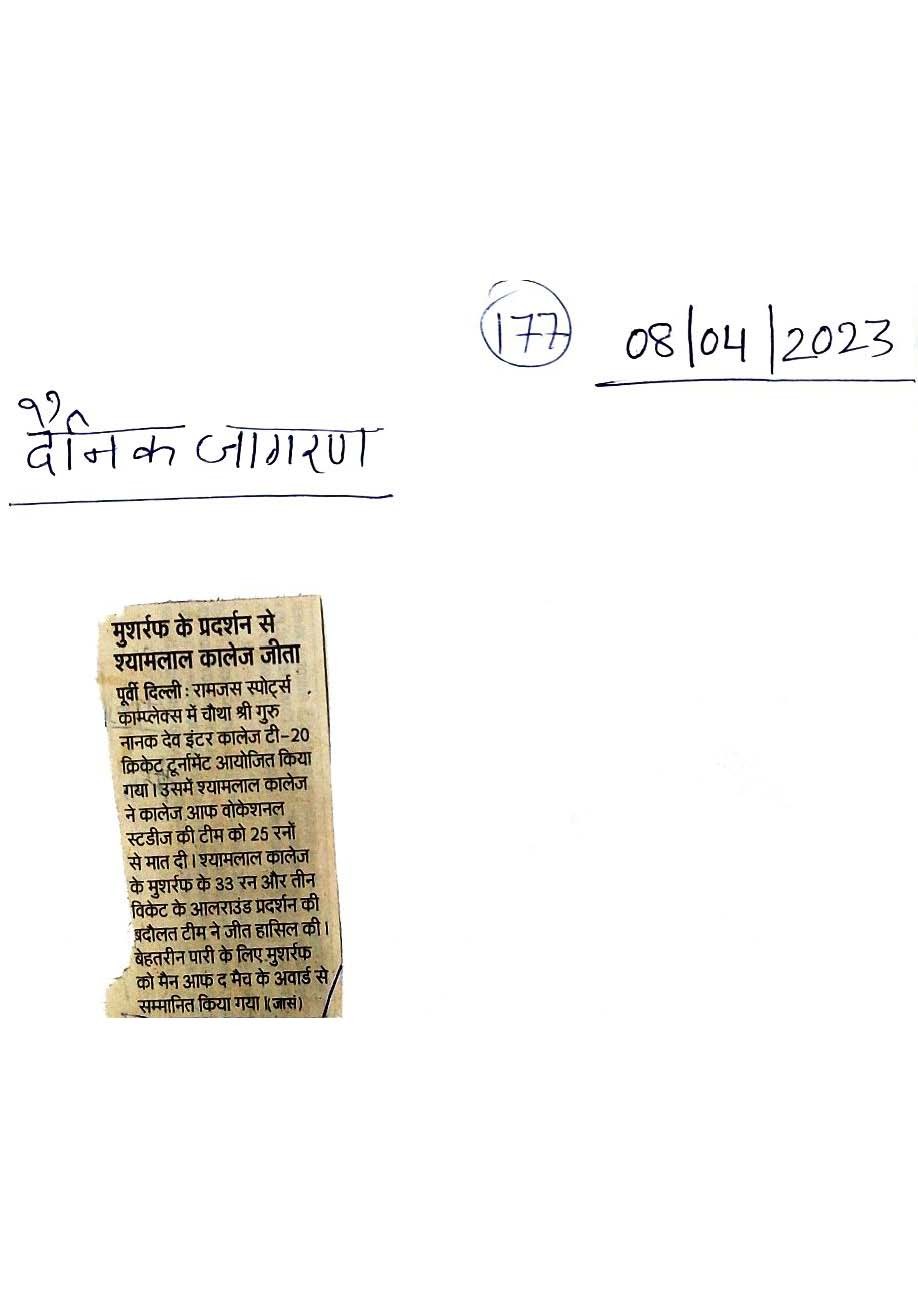 177 08/04/2023
दैनिक जागरण
मुशर्रफ के प्रदर्शन से
श्यामलाल कालेज जीता
पूर्वी दिल्ली : रामजस स्पोर्ट्स
काम्प्लेक्स में चौथा श्री गुरु
नानक देव इंटर कालेज टी-20
क्रिकेट टूर्नामेंट आयोजित किया
गया। उसमें श्यामलाल कालेज
ने कालेज आफ वोकेशनल
स्टडीज की टीम को 25 रनों
से मात दी। श्यामलाल कालेज
के मुशर्रफ के 33 रन और तीन
विकेट के आलराउंड प्रदर्शन की
बदौलत टीम ने जीत हासिल की।
बेहतरीन पारी के लिए मुशर्रफ
को मैन आफ द मैच के अवार्ड से
सम्मानित किया गया। (जासं)